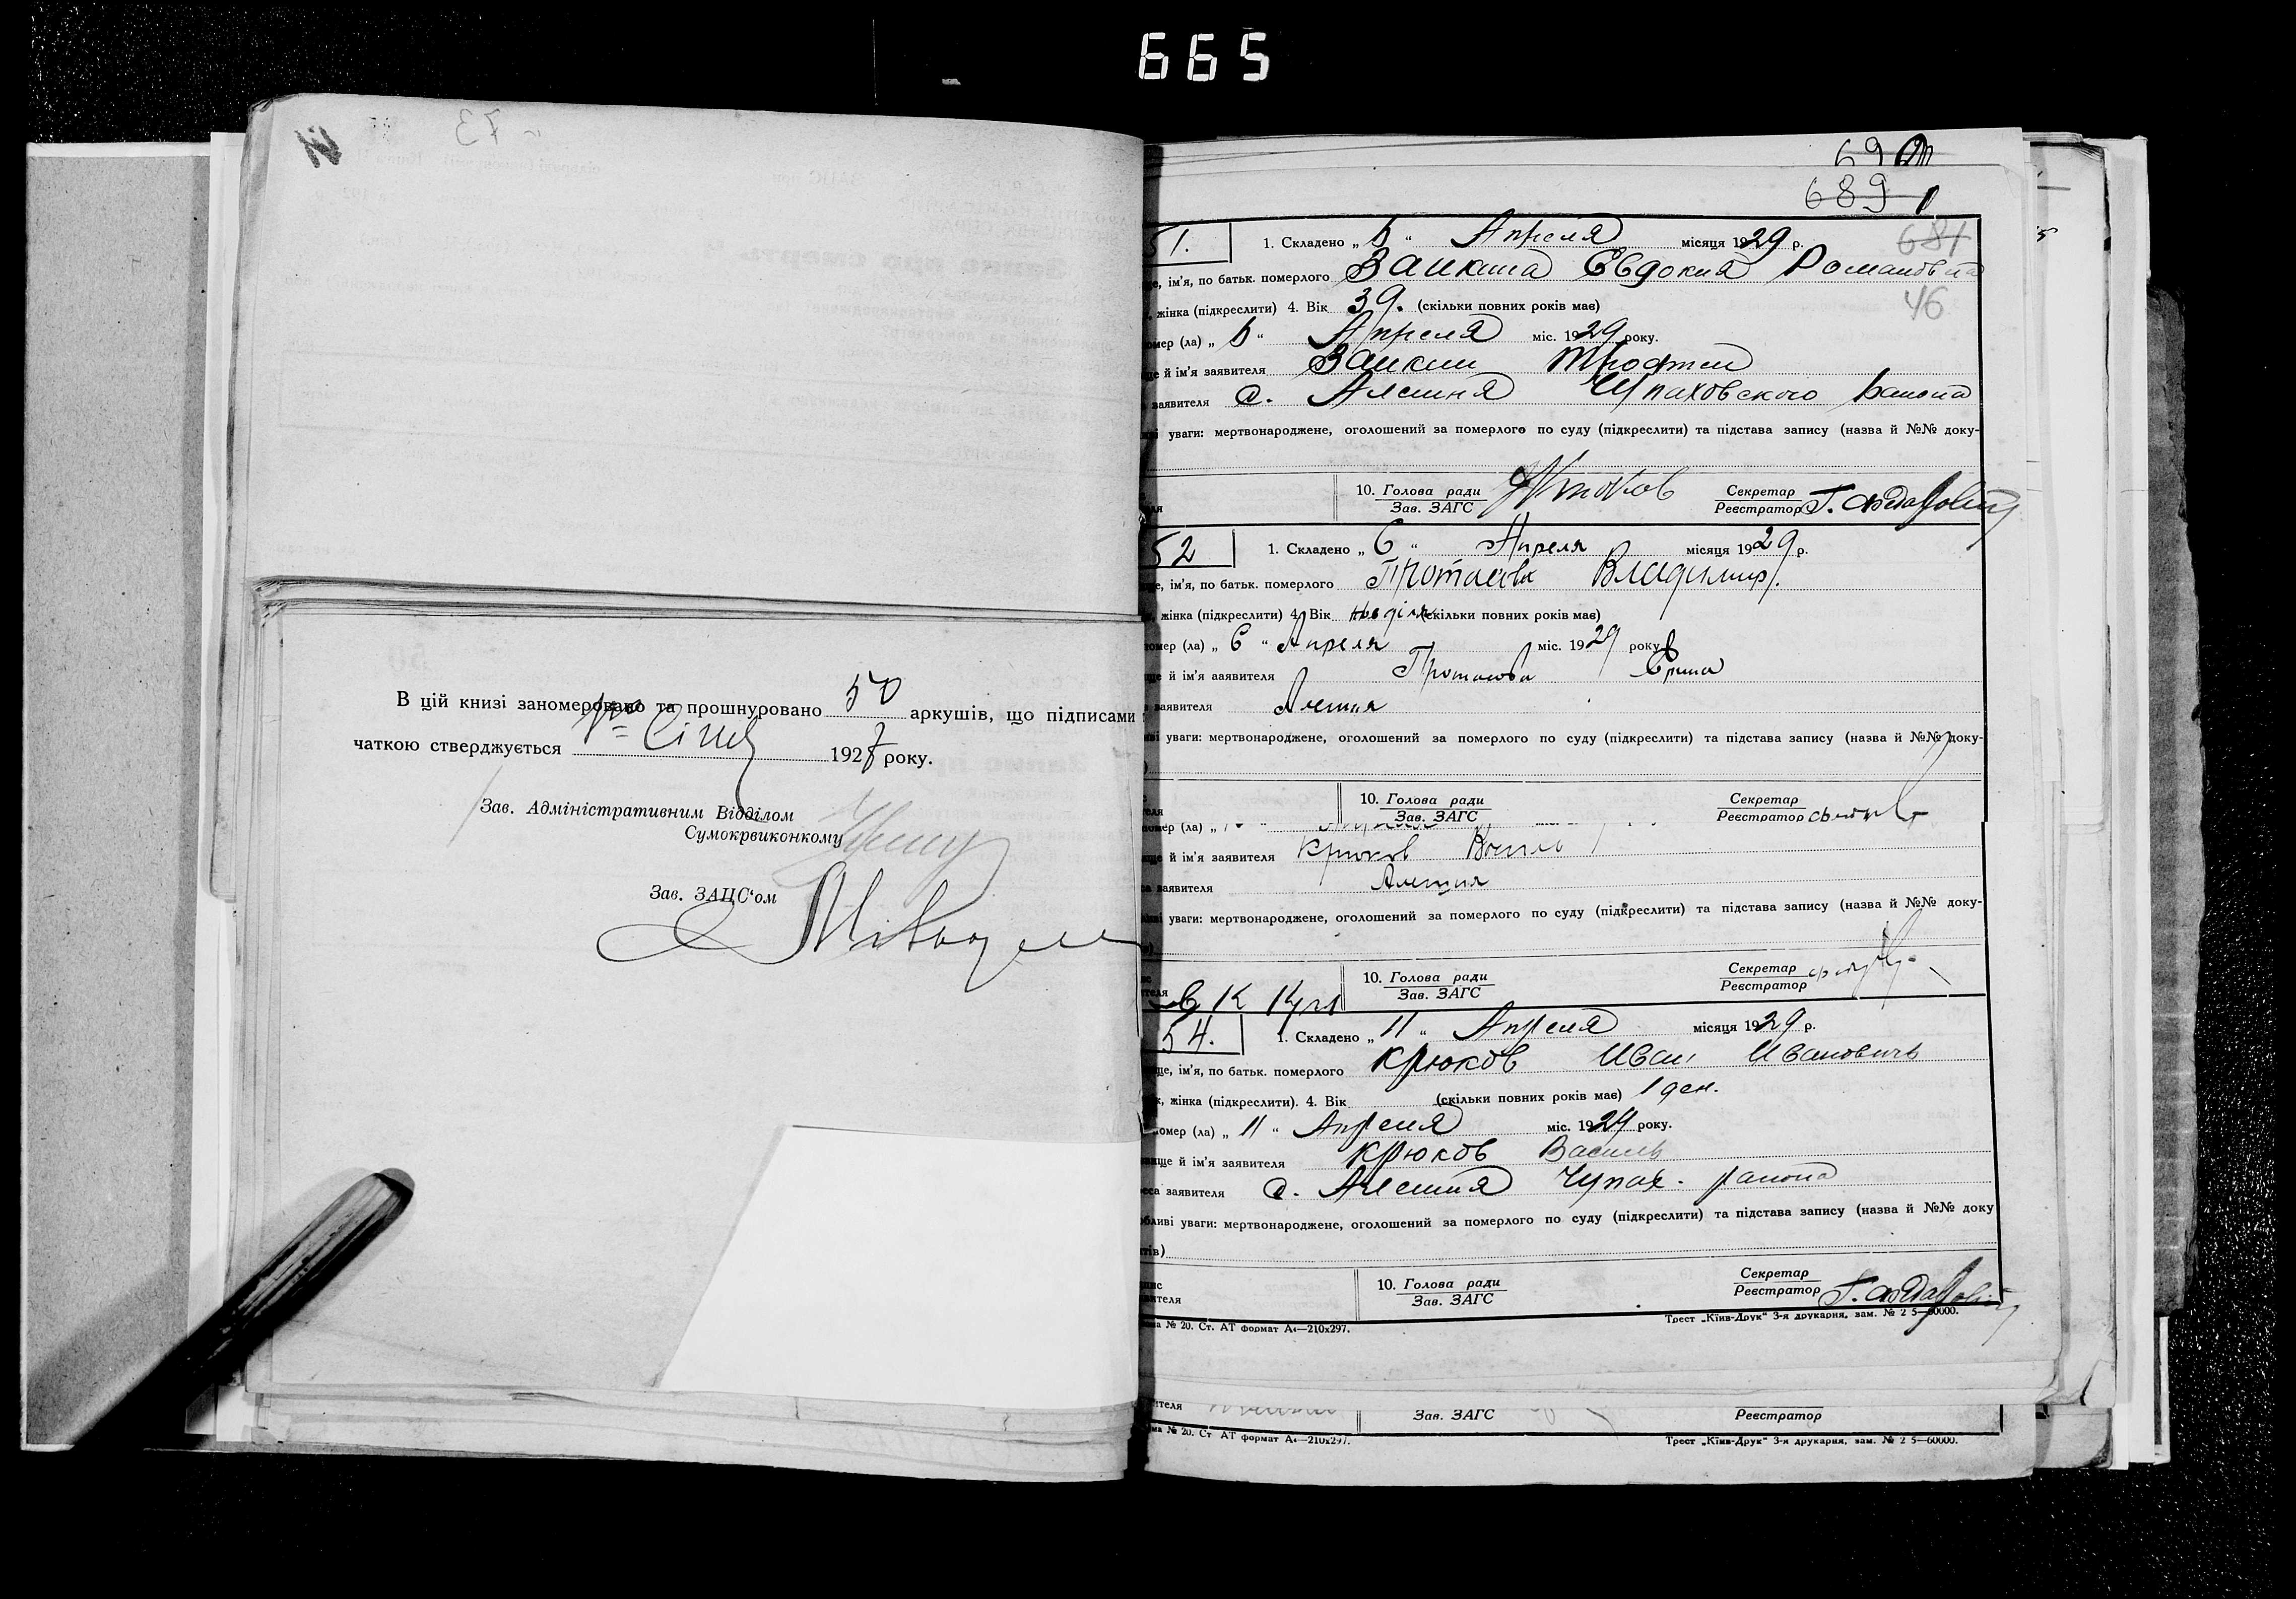 665
73
В цій книзі заномеровано та прошнуровано 50 аркушів, що підписами
чаткою стверджується 1927 року.
Зав. Адміністративним Відділом
Сумокрвиконкому
Зав. ЗАЦС‘ом
69
689
681
46
51. 1. Складено „ 6 “ Апреля місяця 1929 р.
ім'я, по батьк. померлого Заикина Евдокия Романовна
жінка (підкреслити) 4. Вік 39. (скільки повних років має)
омер (ла) „ 6 “ Апреля міс. 1929 року.
й ім'я заявителя Заикин Трофим
заявителя с. Алешня Чупаховского района
уваги: мертвонароджене, оголошений за померлого по суду (підкреслити) та підстава запису (назва й №№ доку-
10. Голова ради
Зав. ЗАГС
Секретар
Реєстратор
52 1. Складено „ 6 “ Апреля місяця 1929 р.
ім'я, по батьк. померлого Протасова Владимир.
жінка (підкреслити) 4. Вік (скільки повних років має)
омер (ла) „ 6 “ Апреля міс. 1929 року
й ім'я заявителя Протасова
заявителя Алешня
уваги: мертвонароджене, оголошений за померлого по суду (підкреслити) та підстава запису (назва й №№ доку-
10. Голова ради
Зав. ЗАГС
Секретар
Реєстратор
омер (ла) „
й ім'я заявителя Крюков
заявителя Алешня
уваги: мертвонароджене, оголошений за померлого по суду (підкреслити) та підстава запису (назва й №№ доку-
10. Голова ради
Зав. ЗАГС
Секретар
Реєстратор
54. 1. Складено „ 11 “ Апреля місяця 1929 р.
ім'я, по батьк. померлого Крюков Иван Иванович
жінка (підкреслити). 4. Вік (скільки повних років має) 1 ден.
омер (ла) „ 11 “ Апреля міс. 1929 року.
й ім'я заявителя Крюков Василь
заявителя с. Алешня Чупах. района
уваги: мертвонароджене, оголошений за померлого по суду (підкреслити) та підстава запису (назва й №№ доку
тів)
10. Голова ради
Зав. ЗАГС
Секретар
Реєстратор
№ 20. Ст. АТ формат А4—210х297.
Трест „Київ-Друк“ 3-я друкарня, зам. № 2 5—60000.
Зав. ЗАГС
Реєстратор
№ 20. Ст АТ формат А4—210х297.
Трест „Київ-Друк“ 3-я друкарня, зам. № 2 5—60000.